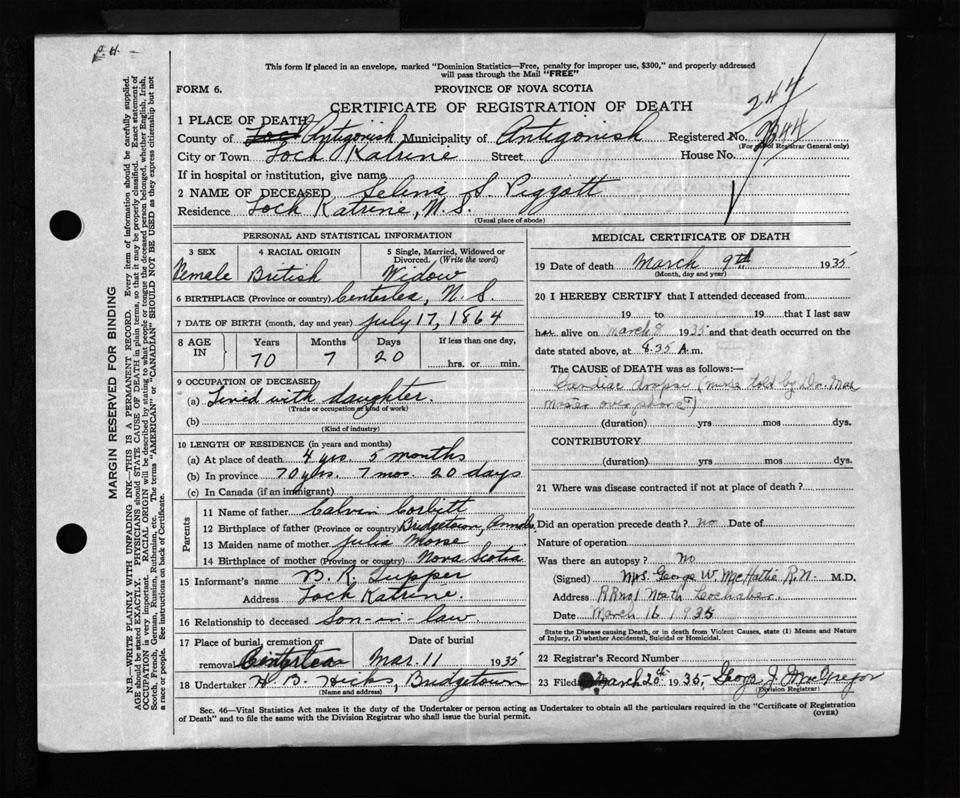 P. H. -
This form if placed in an envelope, marked "Dominion Statistics—Free, penalty for improper use, $300," and properly addressed
will pass through the Mail "FREE"
FORM 6.
PROVINCE OF NOVA SCOTIA
CERTIFICATE OF REGISTRATION OF DEATH
244
1 PLACE OF DEATH
County of Loch Antigonish Municipality of Antigonish Registered No. 9344
(For use of Registrar General only)
City or Town Lock Katrine Street House No.
If in hospital or institution, give name
2 NAME OF DECEASED Selena S Piggott
Residence Lock Katrine, N.S.
(Usual place of abode)
PERSONAL AND STATISTICAL INFORMATION
3 SEX 4 RACIAL ORIGIN 5 Single, Married, Widowed or Divorced. (Write the word)
Female British Widow
6 BIRTHPLACE (Province or country) Centerlea, N.S.
7 DATE OF BIRTH (month, day and year) July 17, 1864
8 AGE IN Years Months Days If less than one day,
70 7 20 hrs. or min.
9 OCCUPATION OF DECEASED
(a) Lived with daughter.
(Trade or occupation or kind of work)
(b)
(Kind of industry)
10 LENGTH OF RESIDENCE (in years and months)
(a) At place of death 4 yrs. 5 months
(b) In province 70 yrs. 7 mos. 20 days
(c) In Canada (if an immigrant)
Parents
11 Name of father Calvin Corbitt
12 Birthplace of father (Province or country) Bridgetown, Annals
13 Maiden name of mother Julia Morse
14 Birthplace of mother (Province or country) Nova Scotia
15 Informant's name B. K. Supper
Address Lock Katrine.
16 Relationship to deceased Son-in-law.
17 Place of burial, cremation or Date of burial
removal Centerlea Mar. 11 1935
18 Undertaker H. B. Hicks, Bridgetown
(Name and address)
MEDICAL CERTIFICATE OF DEATH
19 Date of death March 9th 1935
(Month, day and year)
20 I HEREBY CERTIFY that I attended deceased from
19 to 19 that I last saw
her alive on March 8 1935 and that death occurred on the
date stated above, at 8.35 A.m.
The CAUSE OF DEATH was as follows:—
Cardiac dropsy (nurse told by Dr. Mac
Master over phone)
(duration) yrs mos dys.
CONTRIBUTORY
(duration) yrs mos dys.
21 Where was disease contracted if not at place of death?
Did an operation precede death? no Date of
Nature of operation
Was there an autopsy? No
(Signed) Mrs. George W. MacHattie R.N. M.D.
Address RR no 1 North Lochaber.
Date March 16 1935
State the Disease causing Death, or in death from Violent Causes, state (1) Means and Nature
of Injury, (2) whether Accidental, Suicidal or Homicidal.
22 Registrar's Record Number
23 Filed March 20th 1935, George J. MacGregor
(Division Registrar)
Sec. 46—Vital Statistics Act makes it the duty of the Undertaker or person acting as Undertaker to obtain all the particulars required in the "Certificate of Registration
of Death" and to file the same with the Division Registrar who shall issue the burial permit.
(OVER)
MARGIN RESERVED FOR BINDING
N.B.—WRITE PLAINLY WITH UNFADING INK—THIS IS A PERMANENT RECORD. Every item of information should be carefully supplied.
AGE should be stated EXACTLY. PHYSICIANS should STATE CAUSE OF DEATH in plain terms, so that it may be properly classified. Exact statement of
OCCUPATION is very important. RACIAL ORIGIN will be described by stating to what people or tongue the deceased person belonged, whether English, Irish,
Scotch, French, German, Russian, Ruthenian, etc. The terms "AMERICAN" or "CANADIAN" SHOULD NOT BE USED as they express citizenship but not
a race or people. See instructions on back of Certificate.